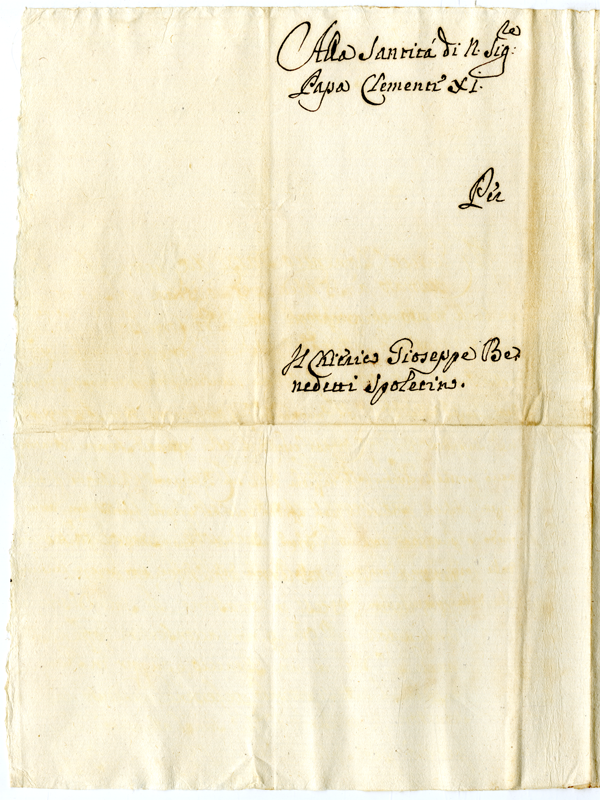 Alla Santitá di N. Sig:re
Papa Clemente XI.
Per
Il Chierico Gioseppe Be,
nedetti Spoletino.